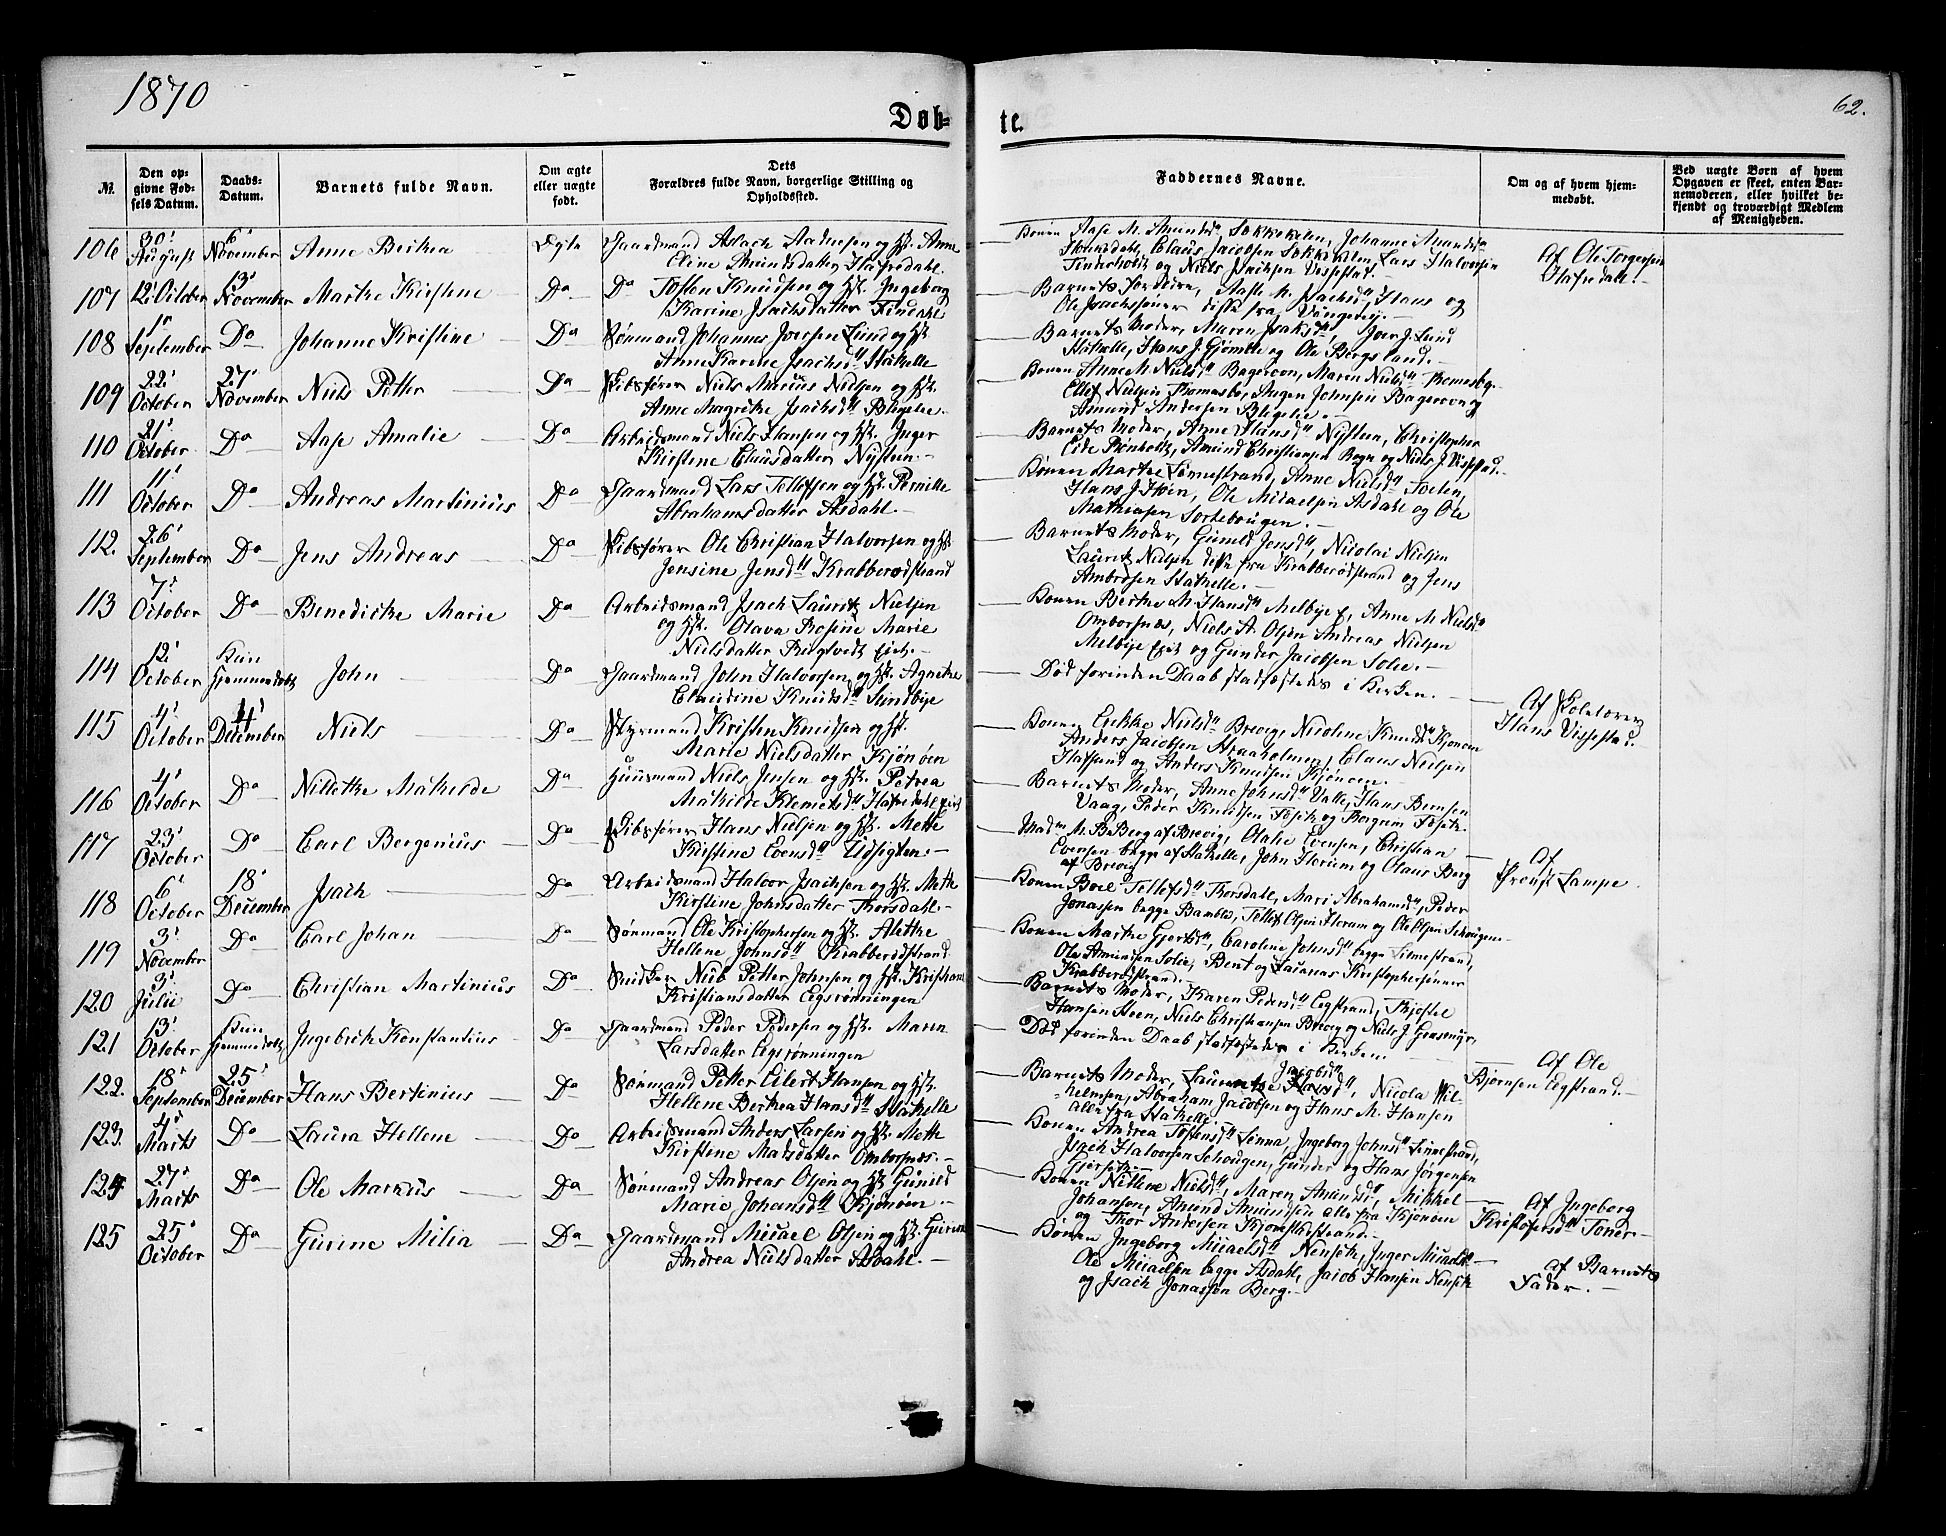 1870
Døb-
te.
62.
№.
Den op-
givne Fød-
sels Datum.
Daabs-
Datum.
Barnets fulde Navn.
Om ægte
eller uægte
født.
Dets
Forældres fulde Navn, borgerlige Stilling og
Opholdssted.
Faddernes Navne.
Om og af hvem hjem-
medøbt.
Ved uægte Børn af hvem
Opgaven er skeet, enten Bar-
nemoderen, eller hvilket be-
kjendt og troværdigt Medlem
af Menigheden.
106 30' August 6' November Anne Berthea Ægte Gaardmand Aslach Aadnesen og Hst. Anne
Eline Amundsdatter Hafredahl.
Konen Aase M. Amundsd Søkkekilen, Johanne Amundsd
Hafredahl, Claus Jacobsen Søkkekilen Lars Halvorsen
Finderholdt og Niels Isachsen Vissestad.
Af Ole Torgersen
Hafredahl.
107 12' October 13' November Marthe Kirstine Do Do Tosten Knudsen og Hst. Ingeborg
Karine Isachsdatter Findahl
Barnets Forældre, Aaste M. Isachsd", Hans og
Ole Isachssønner disse fra
108 1' September Do Johanne Kristine Do Sømand Johannes Joersen Lund og Hst
Anne Karine Isachsd" Stathelle
Barnets Moder, Maren Isaksd", Joer J. Lund
Stathelle, Hans J. Gjømle og Ole Bergsland.
109 22' October 27' November Niels Petter Do Skibsfører Niels Marius Nielsen og Hst.
Anne Magrethe Isachsd" Bligelie.
Konen Anne M. Nielsd" Bagerovn, Maren Nielsd"
Ellef Nielsen Thomasbø, Jørgen Johnsen Bagerovn og
Amund Andersen Bligelie.
110 21' October Do Aase Amalie Do Arbeidsmand Niels Hansen og Hst. Inger
Kirstine Clausdatter Nystuen.
Barnets Moder, Anne Hansd" Nystuen, Christopher
Eide Rønholdt, Amund Christiansen Bogn og Niels J. Vissestad.
111 11' October Do Andreas Martinius Do Gaardmand Lars Tollefsen og Hst. Pernille
Abrahamsdatter Asdahl.
Konen Marthe Linnestrand, Anne Nielsd"
Hans J. Hoen, Ole Micaelsen Asdahl og Ole
Mathiasen Sortebougen.
112. 26' September Do Jens Andreas Do Skibsfører Ole Christian Halvorsen og Hst
Jensine Jensd" Krabberødstrand
Barnets Moder, Gunild Jensd", Nicolai Nielsen
Lauritz Nielsen disse fra Krabberødstrand og Jens
Ambrosen Stathelle.
113 7' October Do Benedicthe Marie Do Arbeidsmand Isach Lauritz Nielsen
og Hst. Olava Rosine Marie
Nielsdatter Rugtvedt Eiet.
Konen Berthe M. Hansd" Melbye E, Anne M. Nielsd"
Ombors­næs, Niels A. Olsen Andreas Nielsen
Melbye Eiet og Gunder Jacobsen Solie.
114 12' October Kun hjemmedøbt John Do Gaardmand John Halvorsen og Hst. Agnethe
Claudine Knudsd" Sundbye
Død forinden Daab stadfæstedes i Kirken.
Af Skolelærer
Hans Vissestad.
115 4' October 4' December Niels Do Styrmand Kristen Knudsen og Hst.
Marie Nielsdatter Kjønøen
Konen Lukke Nielsd" Brevig, Nicoline Knudsd" Kjønøen
Anders Jacobsen Straaholmen, Claus Nielsen
Hafsund og Anders Knudsen Kjønøen.
116 4' October Do Nillethe Mathilde Do Huusmand Niels Jensen og Hst. Petrea
Mathilde Klemetsd" Hafredahl Eiet
Barnets Moder, Anne Johnsd" Valle, Hans Bernsen
Vaag, Peder Knudsen Fosse og Borgrim Fosse.
117 23' October Do Carl Bergenius Do Skibsfører Hans Nielsen og Hst. Mette
Kirstine Evensd" Udsigten.
Madm M. B. Berg af Brevig, Olalie Evensen, Christian
Evensen begge af Stathelle, John Flørum og Olaus Berg
af Brevig
Af
Provst Lampe.
118 6' October 18' December Isach Do Arbeidsmand Halvor Isachsen og Hst. Mette
Kirstine Johnsdatter Thorsdahl.
Konen Boel Tellefsd" Thorsdahl, Mari Abrahamsd", Peder
Jonassen begge Bambles, Tellef Olsen Flørum og Ole Olsen Schougen.
119 3' November Do Carl Johan Do Sømand Ole Kristophersen og Hst. Alethe
Hellene Johnsd" Krabberødstrand.
Konen Marthe Gjertsd", Caroline Johnsd" begge Linnestrand,
Ole Amundsen Solie, Bent og Kristophersønner
Krabberødstrand.
120 3' Julii Do Christian Martinius Do Snidker Niels Petter Johnsen og Hst. Kristiane
Kristiansdatter Eegsrønningen
Barnets Moder, Karen Pedersd" Eegstrand, Kjøstel
Hansen Steen, Niels Christiansen Brevig og Niels J. Grasmyr.
121 13' October Kun hjemmedøbt Ingebrith Konstantius Do Gaardmand Peder Pedersen og Hst. Maren
Larsdatter Eegsrønningen
Død forinden Daab stadfæstedes i Kirken.
Af Ole
Bjørnsen Eegstrand.
122. 18' September 25' December Hans Bertinius Do Sømand Petter Eilert Hansen og Hst.
Hellene Berthea Hansd" Stathelle
Barnets Moder, Laurentze Jacobsd", Nicolai Wil-
helmsen, Abraham Jacobsen og Hans M. Hansen
alle fra Stathelle.
123. 4' Marts Do Laura Hellene Do Arbeidsmand Anders Larsen og Hst. Mette
Kirstine Madsdatter Ombors­næs.
Konen Andrea Tostensd" Linna, Ingeborg Johnsd" Linnestrand,
Isach Halvorsen Schougen, Gunder og Hans Jørgensen
124 27' Marts Do Ole Markus Do Sømand Andreas Olsen og Hst Gunild
Marie Johansd" Kjønøen
Konen Nillene Nielsd", Maren Amundsd" Mikkel
Johansen, Amund Amundsen alle fra Kjønøen
og Thor Andersen
Af Ingeborg
Kristofersd" Toner.
125 25' October Do Gurine Milia Do Gaardmand Micael Olsen og Hst. Gurine
Andrea Nielsdatter Asdahl.
Konen Ingeborg Micaelsd" Nensæth, Inger Micaelsd"
Ole Micaelsen begge Asdahl, Jacob Hansen Nensæth
og Isach Jonassen Berg.
af Barnets
Fader.